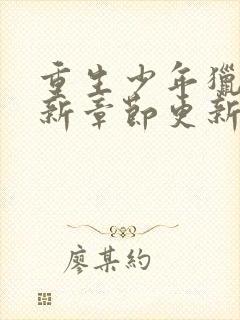 重生少年獵
新章節更新
廖某約